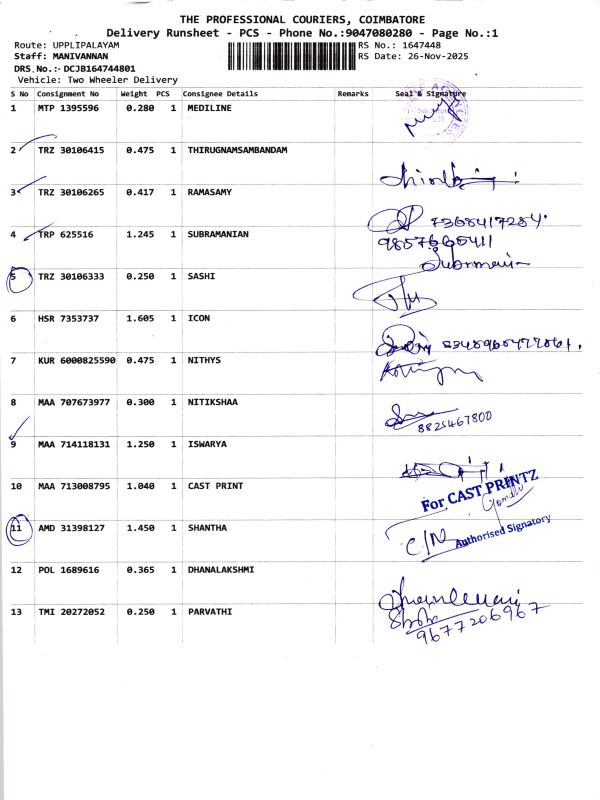 THE PROFESSIONAL COURIERS, COIMBATORE
Delivery Runsheet - PCS - Phone No.:9047080280 - Page No.:1
Route: UPPLIPALAYAM RS No.: 1647448
Staff: MANIVANNAN RS Date: 26-Nov-2025
DRS No.:- DCJB164744801
Vehicle: Two Wheeler Delivery
S No Consignment No Weight PCS Consignee Details Remarks Seal & Signature
1 MTP 1395596 0.280 1 MEDILINE
2 TRZ 30106415 0.475 1 THIRUGNAMSAMBANDAM
3 TRZ 30106265 0.417 1 RAMASAMY
7368417284
4 TRP 625516 1.245 1 SUBRAMANIAN
5 TRZ 30106333 0.250 1 SASHI
6 HSR 7353737 1.605 1 ICON
7 KUR 6000825590 0.475 1 NITHYS
8 MAA 707673977 0.300 1 NITIKSHAA
8825467800
9 MAA 714118131 1.250 1 ISWARYA
10 MAA 713008795 1.040 1 CAST PRINT
For CAST PRINTZ
11 AMD 31398127 1.450 1 SHANTHA
C/N Authorised Signatory
12 POL 1689616 0.365 1 DHANALAKSHMI
13 TMI 20272052 0.250 1 PARVATHI
9677206967